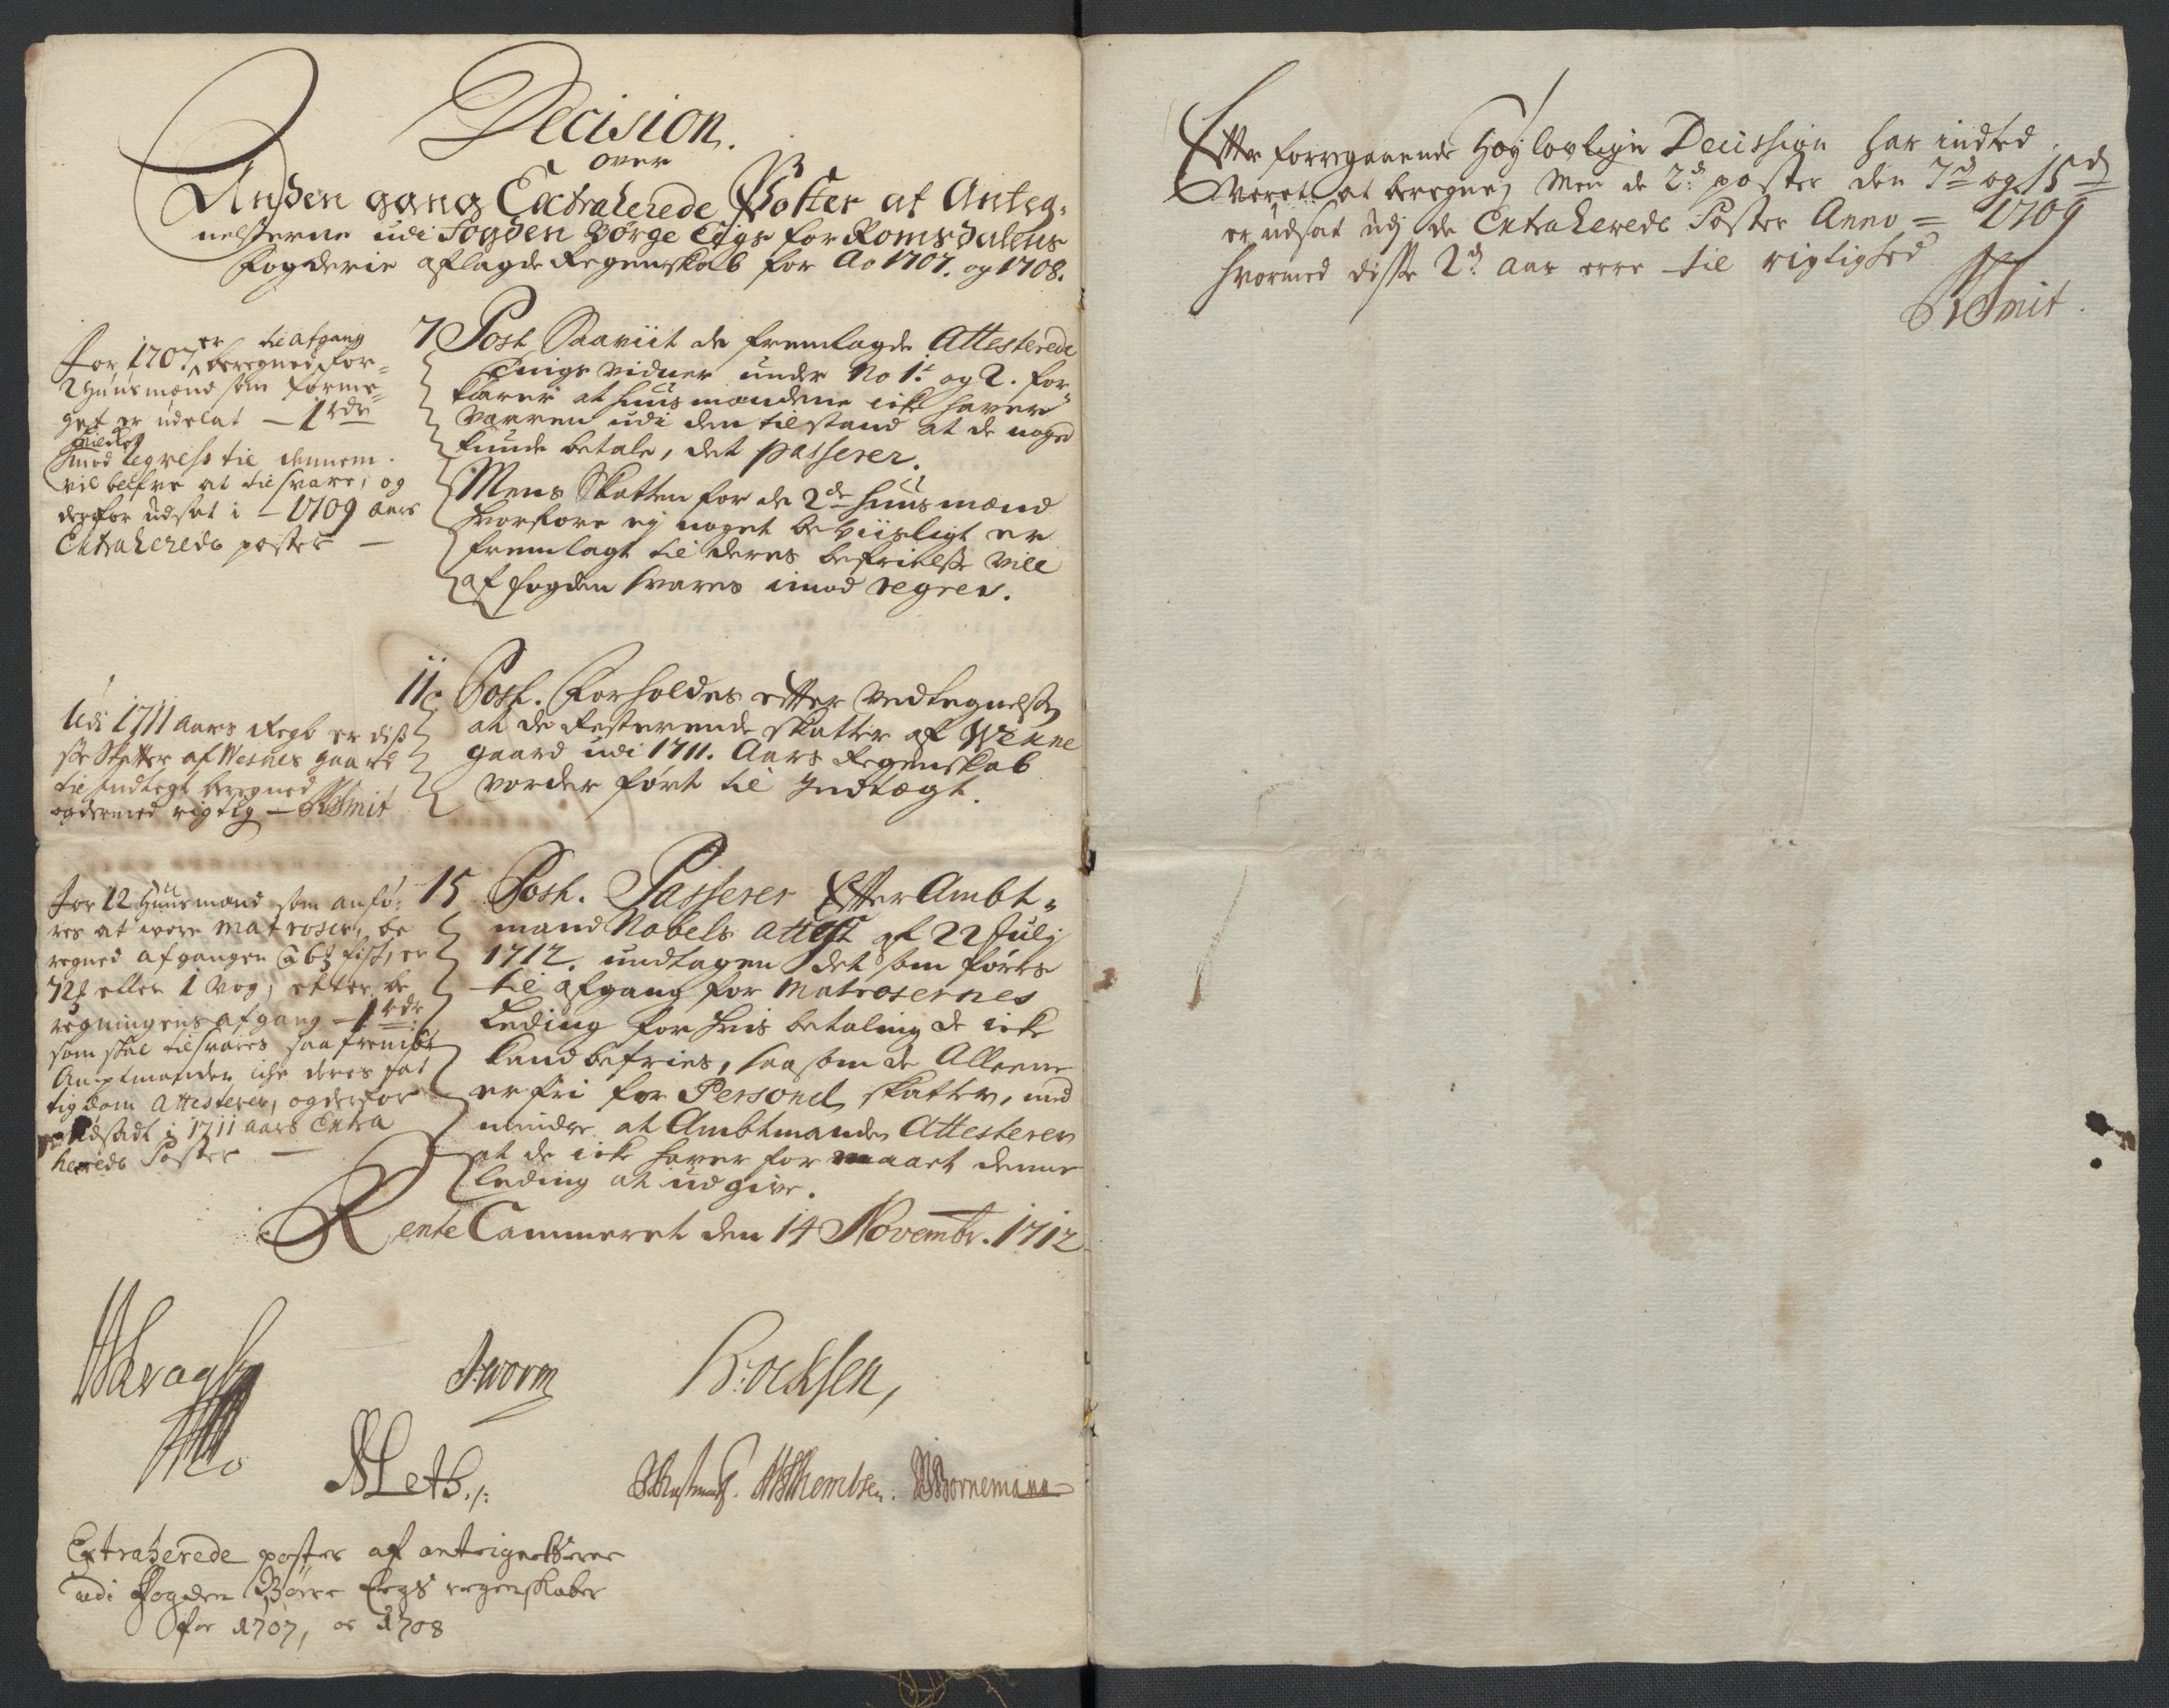 Decision.
over
Anden gang Extraherede Poster af Anteg-
nelserne udi Fogden Børge Eegs for Romsdalens
fogderie aflagde Regenskab for Ao 1707. og 1708.
For 1707 er til afgang
beregned for
2 huusmænd som forme-
get er udelat — 1 rdr
imod Regress til dennem
vil blifve at tilsvare, og
derfor udsat i 1709 aars
Extraherede poster —
7 Post Saaviit de fremlagde Attesterede
tings vidner under No 1. og 2. for-
klarer at huusmændene icke haver
varren udi den tilstand at de noget
kunde betale, det passerer.
Mens Skatten for de 2de huusmænd
hvorfore ej noget beviisligt er
fremlagt til deres befrielse vill
af fogden svares imod regres.
Udi 1711 aars Regb er diß
se Skatter af Wesnes gaard
til Indtegt beregned
og dermed rigtig — Smit
11 Post. Forholdes efter vedtegnelsen
at de Resterende skatter af Wenne
gaard udi 1711. Aars Regenskab
vorder ført til Indtægt.
For 12 Huusmænd som anfø-
res at were matroser, be
regned afgangen à 6 fisk, er
72 eller 1 vog, efter be
regningens afgang — 1 rdr
som skal tilsvares saafremt
Amptmanden iche deres fat
tigdom Attesterer, og derfor
udsadt i 1711 aars Extra
herede Poster —
15 Post. Passerer Efter Ambt-
mand Nobels attest af 22 Julj
1712. undtagen det som førtes
til afgang for Matrosernes
Leding for hvis betaling de icke
kand befries, saasom de Alleene
er fri for Personel skatter, med
mindre at Ambtmanden Attesterer
at de icke haver formaaet denne
leding at udgive.
Rente Cammeret den 14 Novembr. 1712
Worm
Meth
Bornemann
Extraherede poster af antegnelserne
udi Fogden Børre Eegs regenskaber
for 1707, og 1708
Efter forregaaende Høylovlige Decission har indted
veret at beregne, Men de 2de poster den 7de og 15de
er udsat udj de Extraherede Poster Anno = 1709
hvormed disse 2de aar erre til rigtighed
Smit